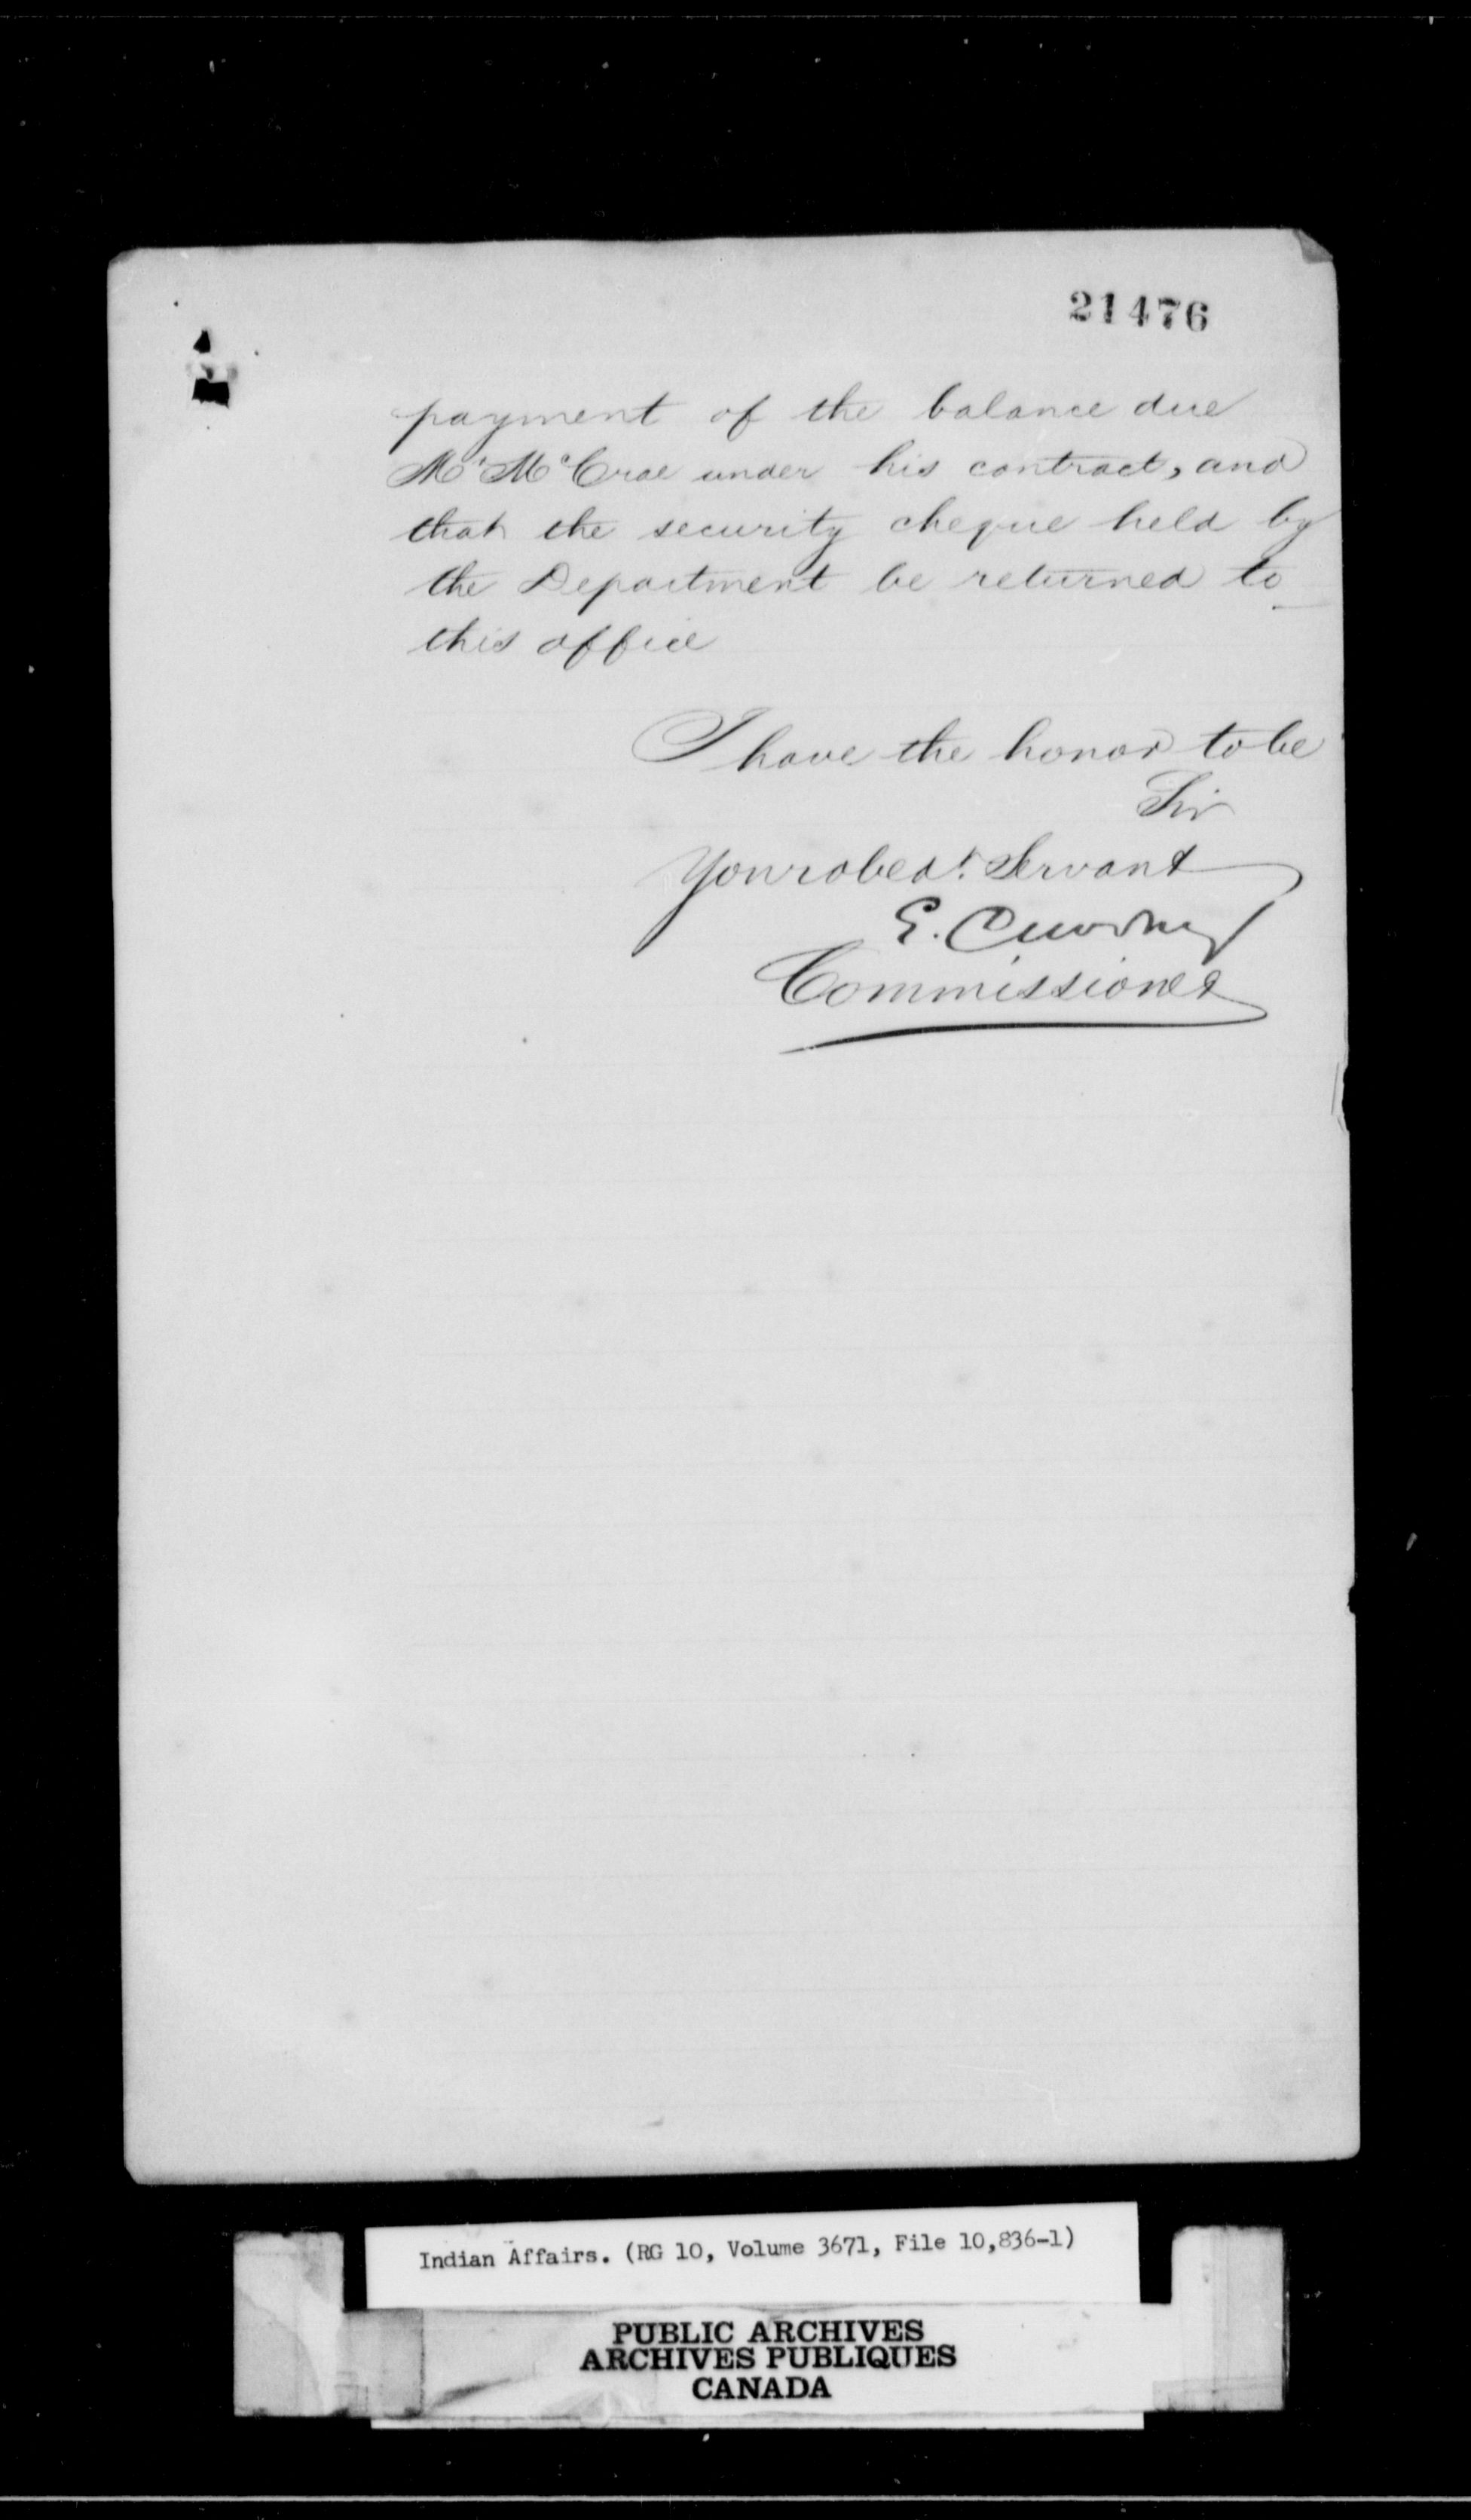 21476
payment of the balance due
Mr McCrae under his contract, and
that the security cheque held by
the Department be returned to
this office
I have the honor to be
Sir
Your obedt. Servant
E.
Commissioner
Indian Affairs. (RG 10, Volume 3671, File 10,836-1)
PUBLIC ARCHIVES
ARCHIVES PUBLIQUES
CANADA